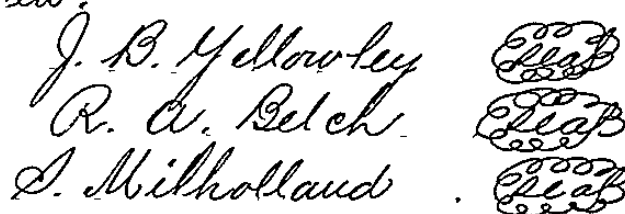 J. B. Yellowley Seal
R. A. Belch. Seal
S. Milholland. Seal